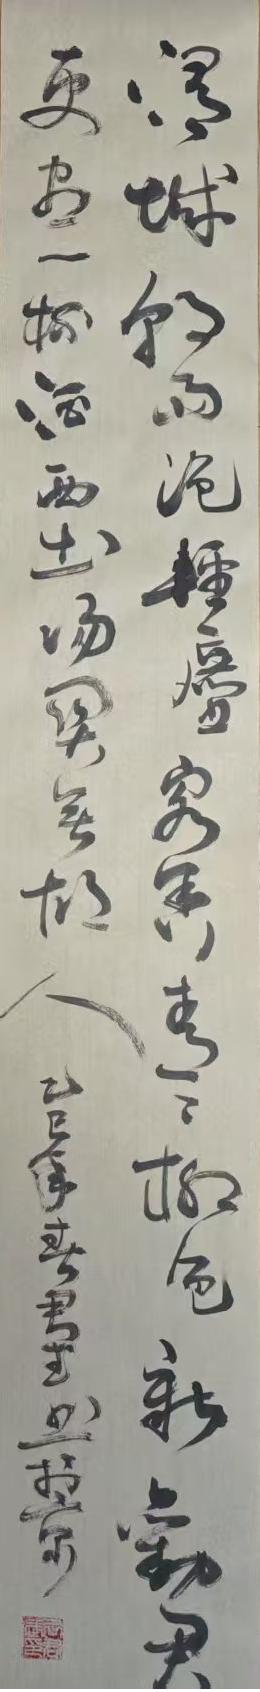 渭城朝雨浥輕塵客舍青々柳色新勸君
更盡一杯酒西出陽關無故人
乙巳年春